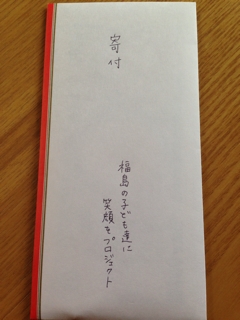 寄付
福島の子ども達に
笑顔をプロジェクト